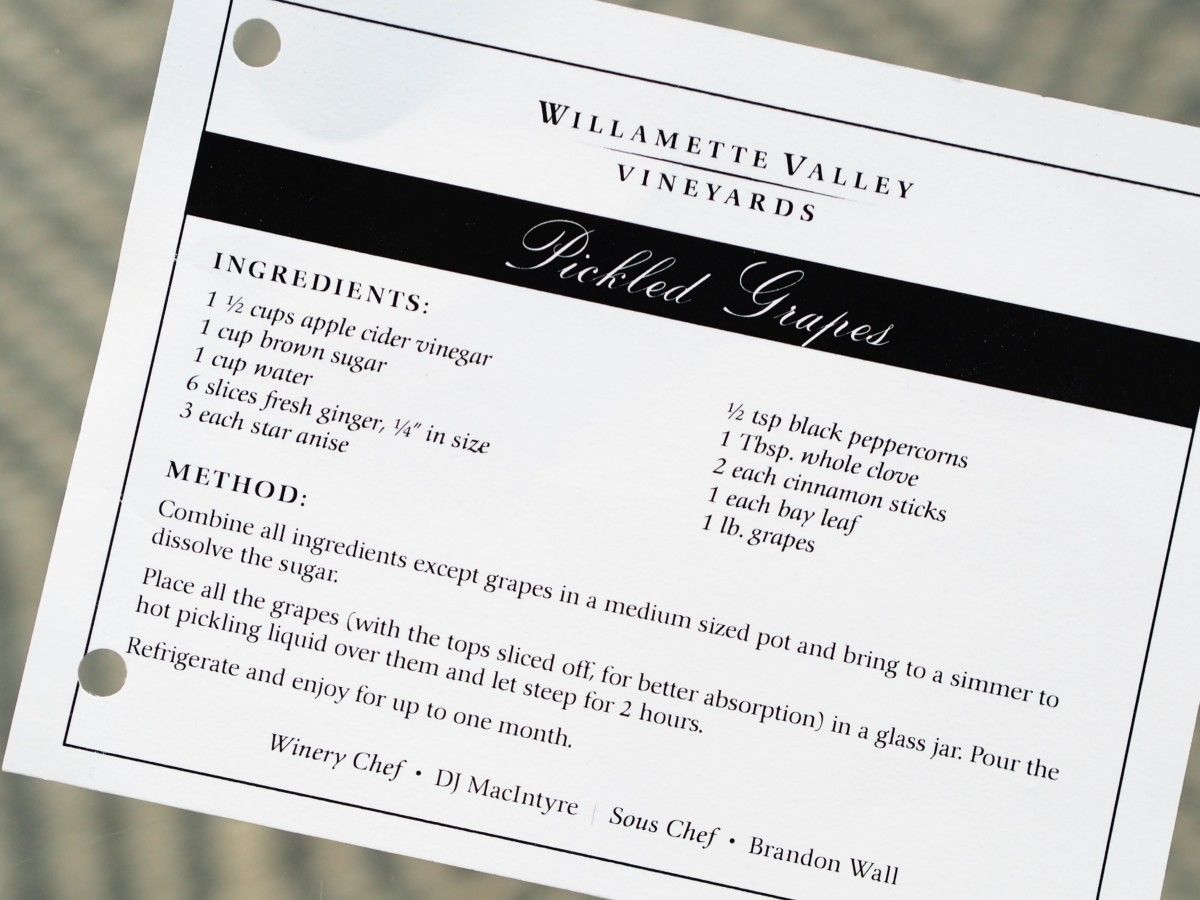 WILLAMETTE VALLEY
VINEYARDS
Pickled Grapes
INGREDIENTS:
1 ½ cups apple cider vinegar
1 cup brown sugar
1 cup water
6 slices fresh ginger, ¼" in size
3 each star anise
½ tsp black peppercorns
1 Tbsp. whole clove
2 each cinnamon sticks
1 each bay leaf
1 lb. grapes
METHOD:
Combine all ingredients except grapes in a medium sized pot and bring to a simmer to
dissolve the sugar.
Place all the grapes (with the tops sliced off, for better absorption) in a glass jar. Pour the
hot pickling liquid over them and let steep for 2 hours.
Refrigerate and enjoy for up to one month.
Winery Chef • DJ MacIntyre | Sous Chef • Brandon Wall